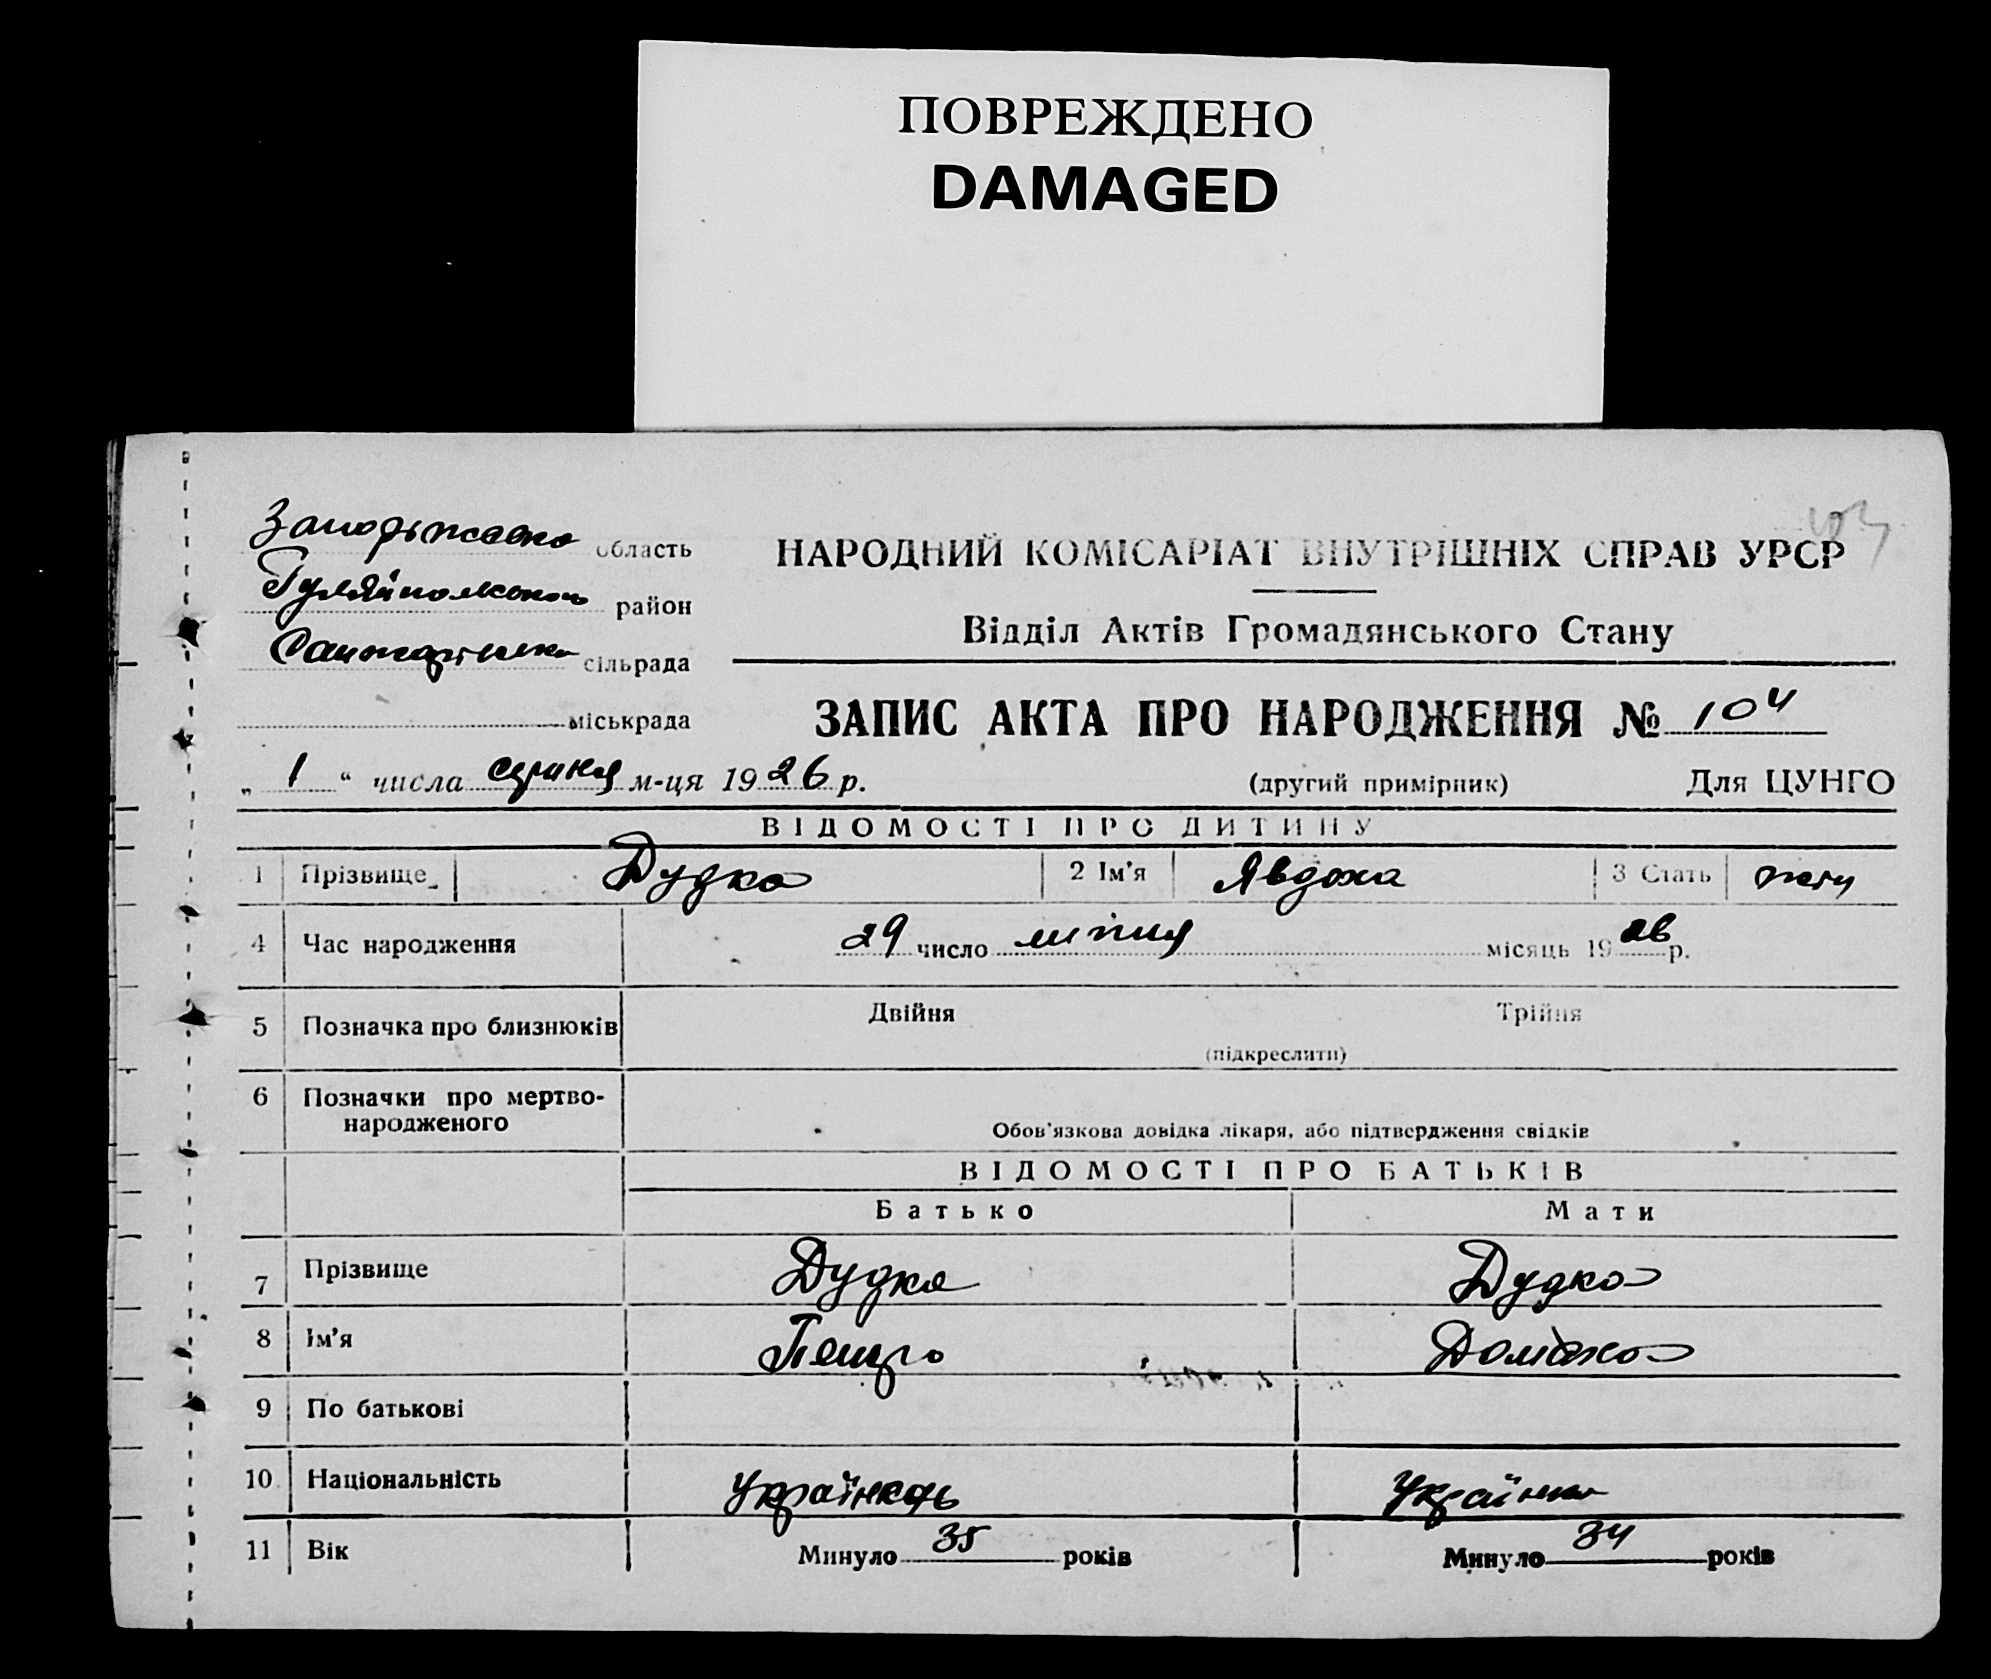 ПОВРЕЖДЕНО
DAMAGED
область
НАРОДНИЙ КОМІСАРІАТ ВНУТРІШНІХ СПРАВ УРСР
район
Відділ Актів Громадянського Стану
сільрада
міськрада
ЗАПИС АКТА ПРО НАРОДЖЕННЯ № 104
„ 1 “ числа серпня м-ця 1926 р.
(другий примірник) Для ЦУНГО
ВІДОМОСТІ ПРО ДИТИНУ
1 Прізвище Дудка 2 Ім'я Явдоха 3 Стать жін
4 Час народження 29 число липня місяць 1926 р.
5 Позначка про близнюків Двійня Трійня
(підкреслити)
6 Позначки про мертво-
народженого
Обов'язкова довідка лікаря, або підтвердження свідків
ВІДОМОСТІ ПРО БАТЬКІВ
Батько Мати
7 Прізвище Дудка Дудка
8 Ім'я Петро Домаха
9 По батькові
10 Національність Українець Українка
11 Вік Минуло 35 років Минуло 34 років